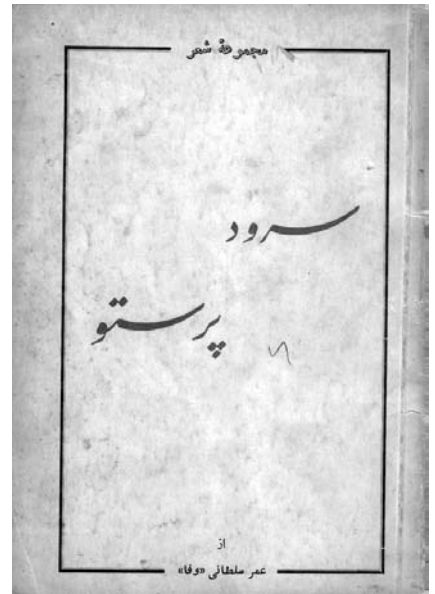 مجموعهٔ شعر
سرود
پرستو
از
عمر سلطانی «وفا»